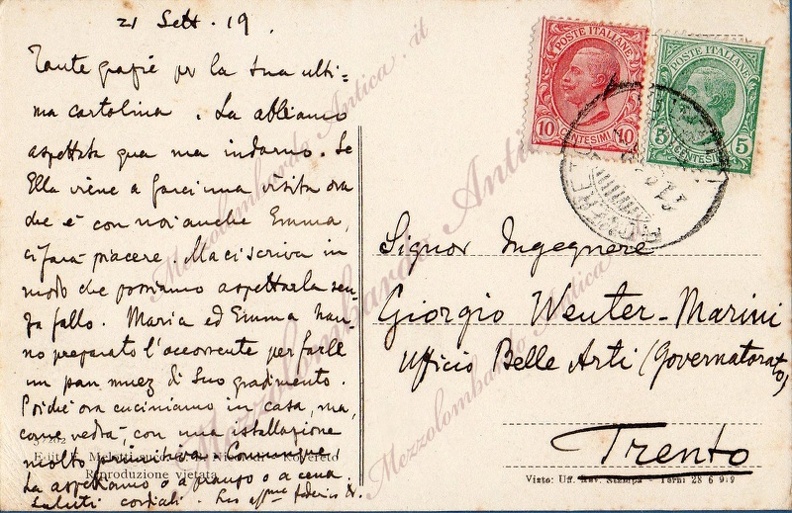 21 Sett. 19.
Tante grazie per la Sua ulti=
ma cartolina. La abbiamo
aspettata qua ma indarno. Se
Ella viene a farci una visita ora
che è con noi anche Emma,
ci farà piacere. Ma ci scriva in
modo che possiamo aspettarla sen-
za fallo. Maria ed Emma han-
no preparato l'occorrente per farle
un pan muez di Suo gradimento.
Poiché ora cuciniamo in casa, ma,
come vedrà, con una istallazione
molto primitiva. Comunque
La aspettiamo o a pranzo o a cena.
Saluti cordiali. Suo affmo Federico
POSTE ITALIANE
10 CENTESIMI 10
POSTE ITALIANE
5 CENTESIMI 5
Signor Ingegnere
Giorgio Wenter-Marini
Ufficio Belle Arti (Governatorato)
Trento
Edit.
Riproduzione vietata
Visto: Uff. Rev. Stampa Terni 28 6 919
Mezzolombardo Antica.it
Mezzolombardo Antica
Mezzolombardo Antica